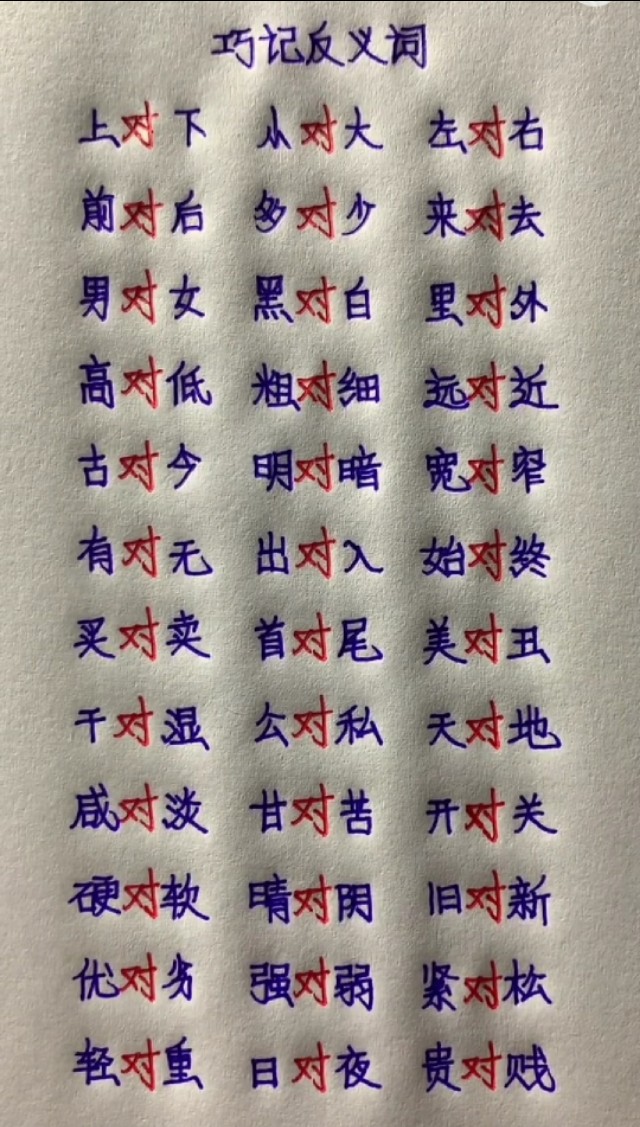 巧记反义词
上对下 小对大 左对右
前对后 多对少 来对去
男对女 黑对白 里对外
高对低 粗对细 远对近
古对今 明对暗 宽对窄
有对无 出对入 始对终
买对卖 首对尾 美对丑
干对湿 公对私 天对地
咸对淡 甘对苦 开对关
硬对软 晴对阴 旧对新
优对劣 强对弱 紧对松
轻对重 日对夜 贵对贱